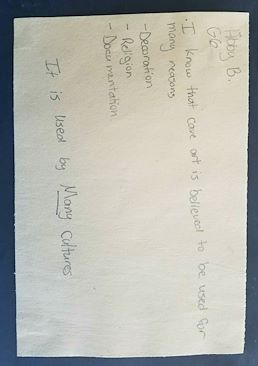 Abby B.
G6
• I know that cave art is believed to be used for
many reasons
- Decoration
- Religion
- Documentation
It is used by Many Cultures